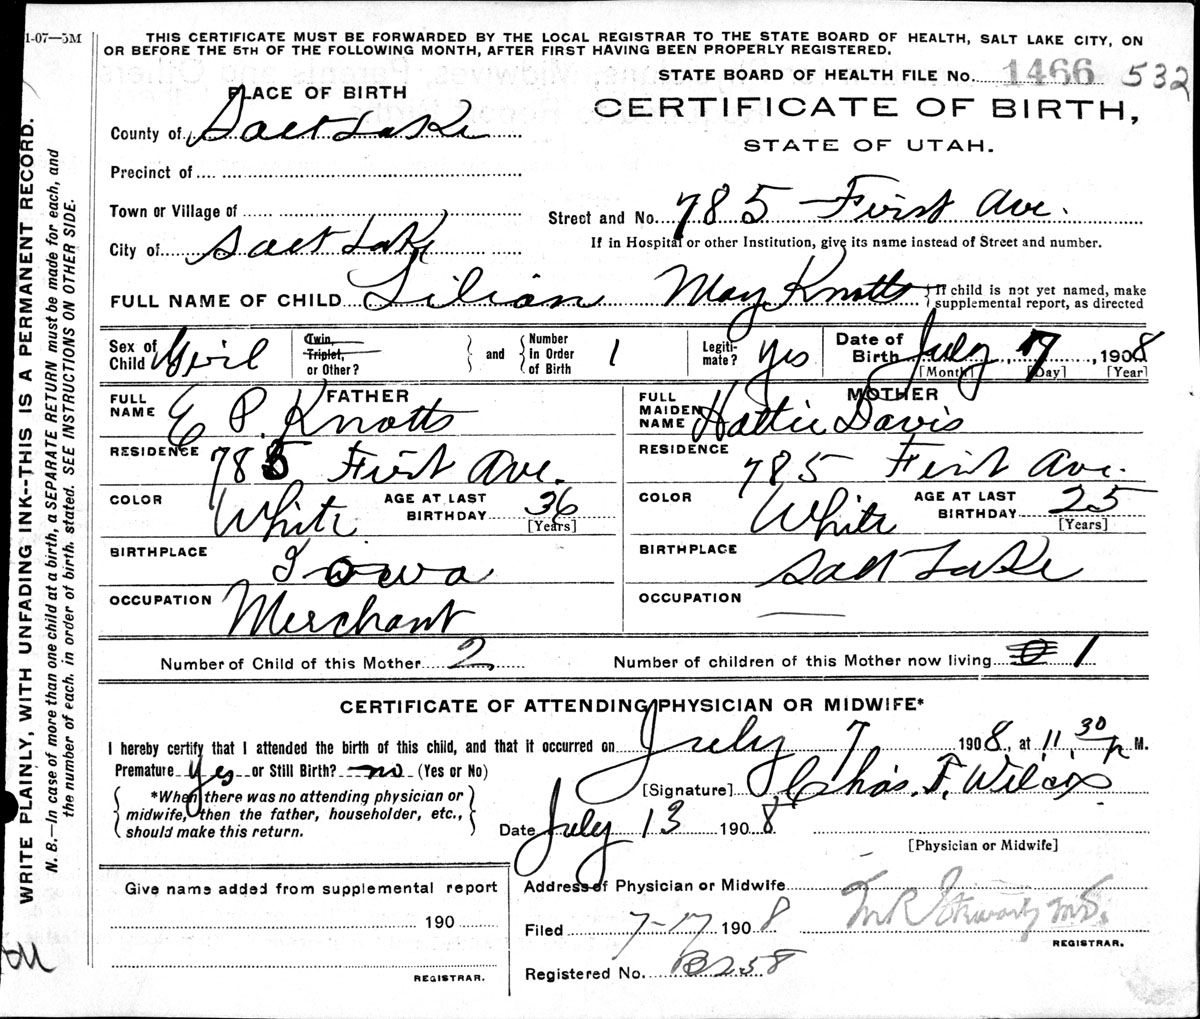 1-07—5M
THIS CERTIFICATE MUST BE FORWARDED BY THE LOCAL REGISTRAR TO THE STATE BOARD OF HEALTH, SALT LAKE CITY, ON
OR BEFORE THE 5TH OF THE FOLLOWING MONTH, AFTER FIRST HAVING BEEN PROPERLY REGISTERED.
STATE BOARD OF HEALTH FILE No. 1466 532
PLACE OF BIRTH
CERTIFICATE OF BIRTH,
STATE OF UTAH.
County of Salt Lake
Precinct of
Town or Village of
Street and No. 785 First Ave.
City of Salt Lake
If in Hospital or other Institution, give its name instead of Street and number.
FULL NAME OF CHILD Lilian May Knotts
If child is not yet named, make
supplemental report, as directed
Sex of Child Girl
Twin, Triplet, or Other? and Number In Order of Birth 1
Legitimate? Yes
Date of Birth July 7, 1908
[Month] [Day] [Year]
FATHER
FULL NAME E P. Knotts
RESIDENCE 785 First Ave.
COLOR White AGE AT LAST BIRTHDAY 36
[Years]
BIRTHPLACE Iowa
OCCUPATION Merchant
MOTHER
FULL MAIDEN NAME Hattie Davis
RESIDENCE 785 First Ave.
COLOR White AGE AT LAST BIRTHDAY 25
[Years]
BIRTHPLACE Salt Lake
OCCUPATION
Number of Child of this Mother 2 Number of children of this Mother now living 0 1
CERTIFICATE OF ATTENDING PHYSICIAN OR MIDWIFE*
I hereby certify that I attended the birth of this child, and that it occurred on July 7 1908, at 11,30 P M.
Premature Yes or Still Birth? no (Yes or No)
[Signature] Chas. F. Wilcox
*When there was no attending physician or
midwife, then the father, householder, etc.,
should make this return.
Date July 13 1908
[Physician or Midwife]
Give name added from supplemental report
190
REGISTRAR.
Address of Physician or Midwife
Filed 7-17 1908
REGISTRAR.
Registered No. B258
WRITE PLAINLY, WITH UNFADING INK--THIS IS A PERMANENT RECORD.
N. B.—In case of more than one child at a birth, a SEPARATE RETURN must be made for each, and
the number of each, in order of birth, stated. SEE INSTRUCTIONS ON OTHER SIDE.